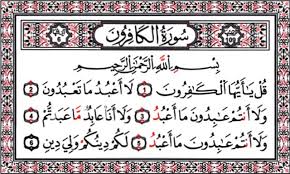 سُورَةُ الْكَافِرُونَ
بِسْمِ اللَّهِ الرَّحْمَٰنِ الرَّحِيمِ
قُلْ يَا أَيُّهَا الْكَافِرُونَ ١ لَا أَعْبُدُ مَا تَعْبُدُونَ ٢
وَلَا أَنتُمْ عَابِدُونَ مَا أَعْبُدُ ٣ وَلَا أَنَا عَابِدٌ مَّا عَبَدتُّمْ ٤
وَلَا أَنتُمْ عَابِدُونَ مَا أَعْبُدُ ٥ لَكُمْ دِينُكُمْ وَلِيَ دِينِ ٦